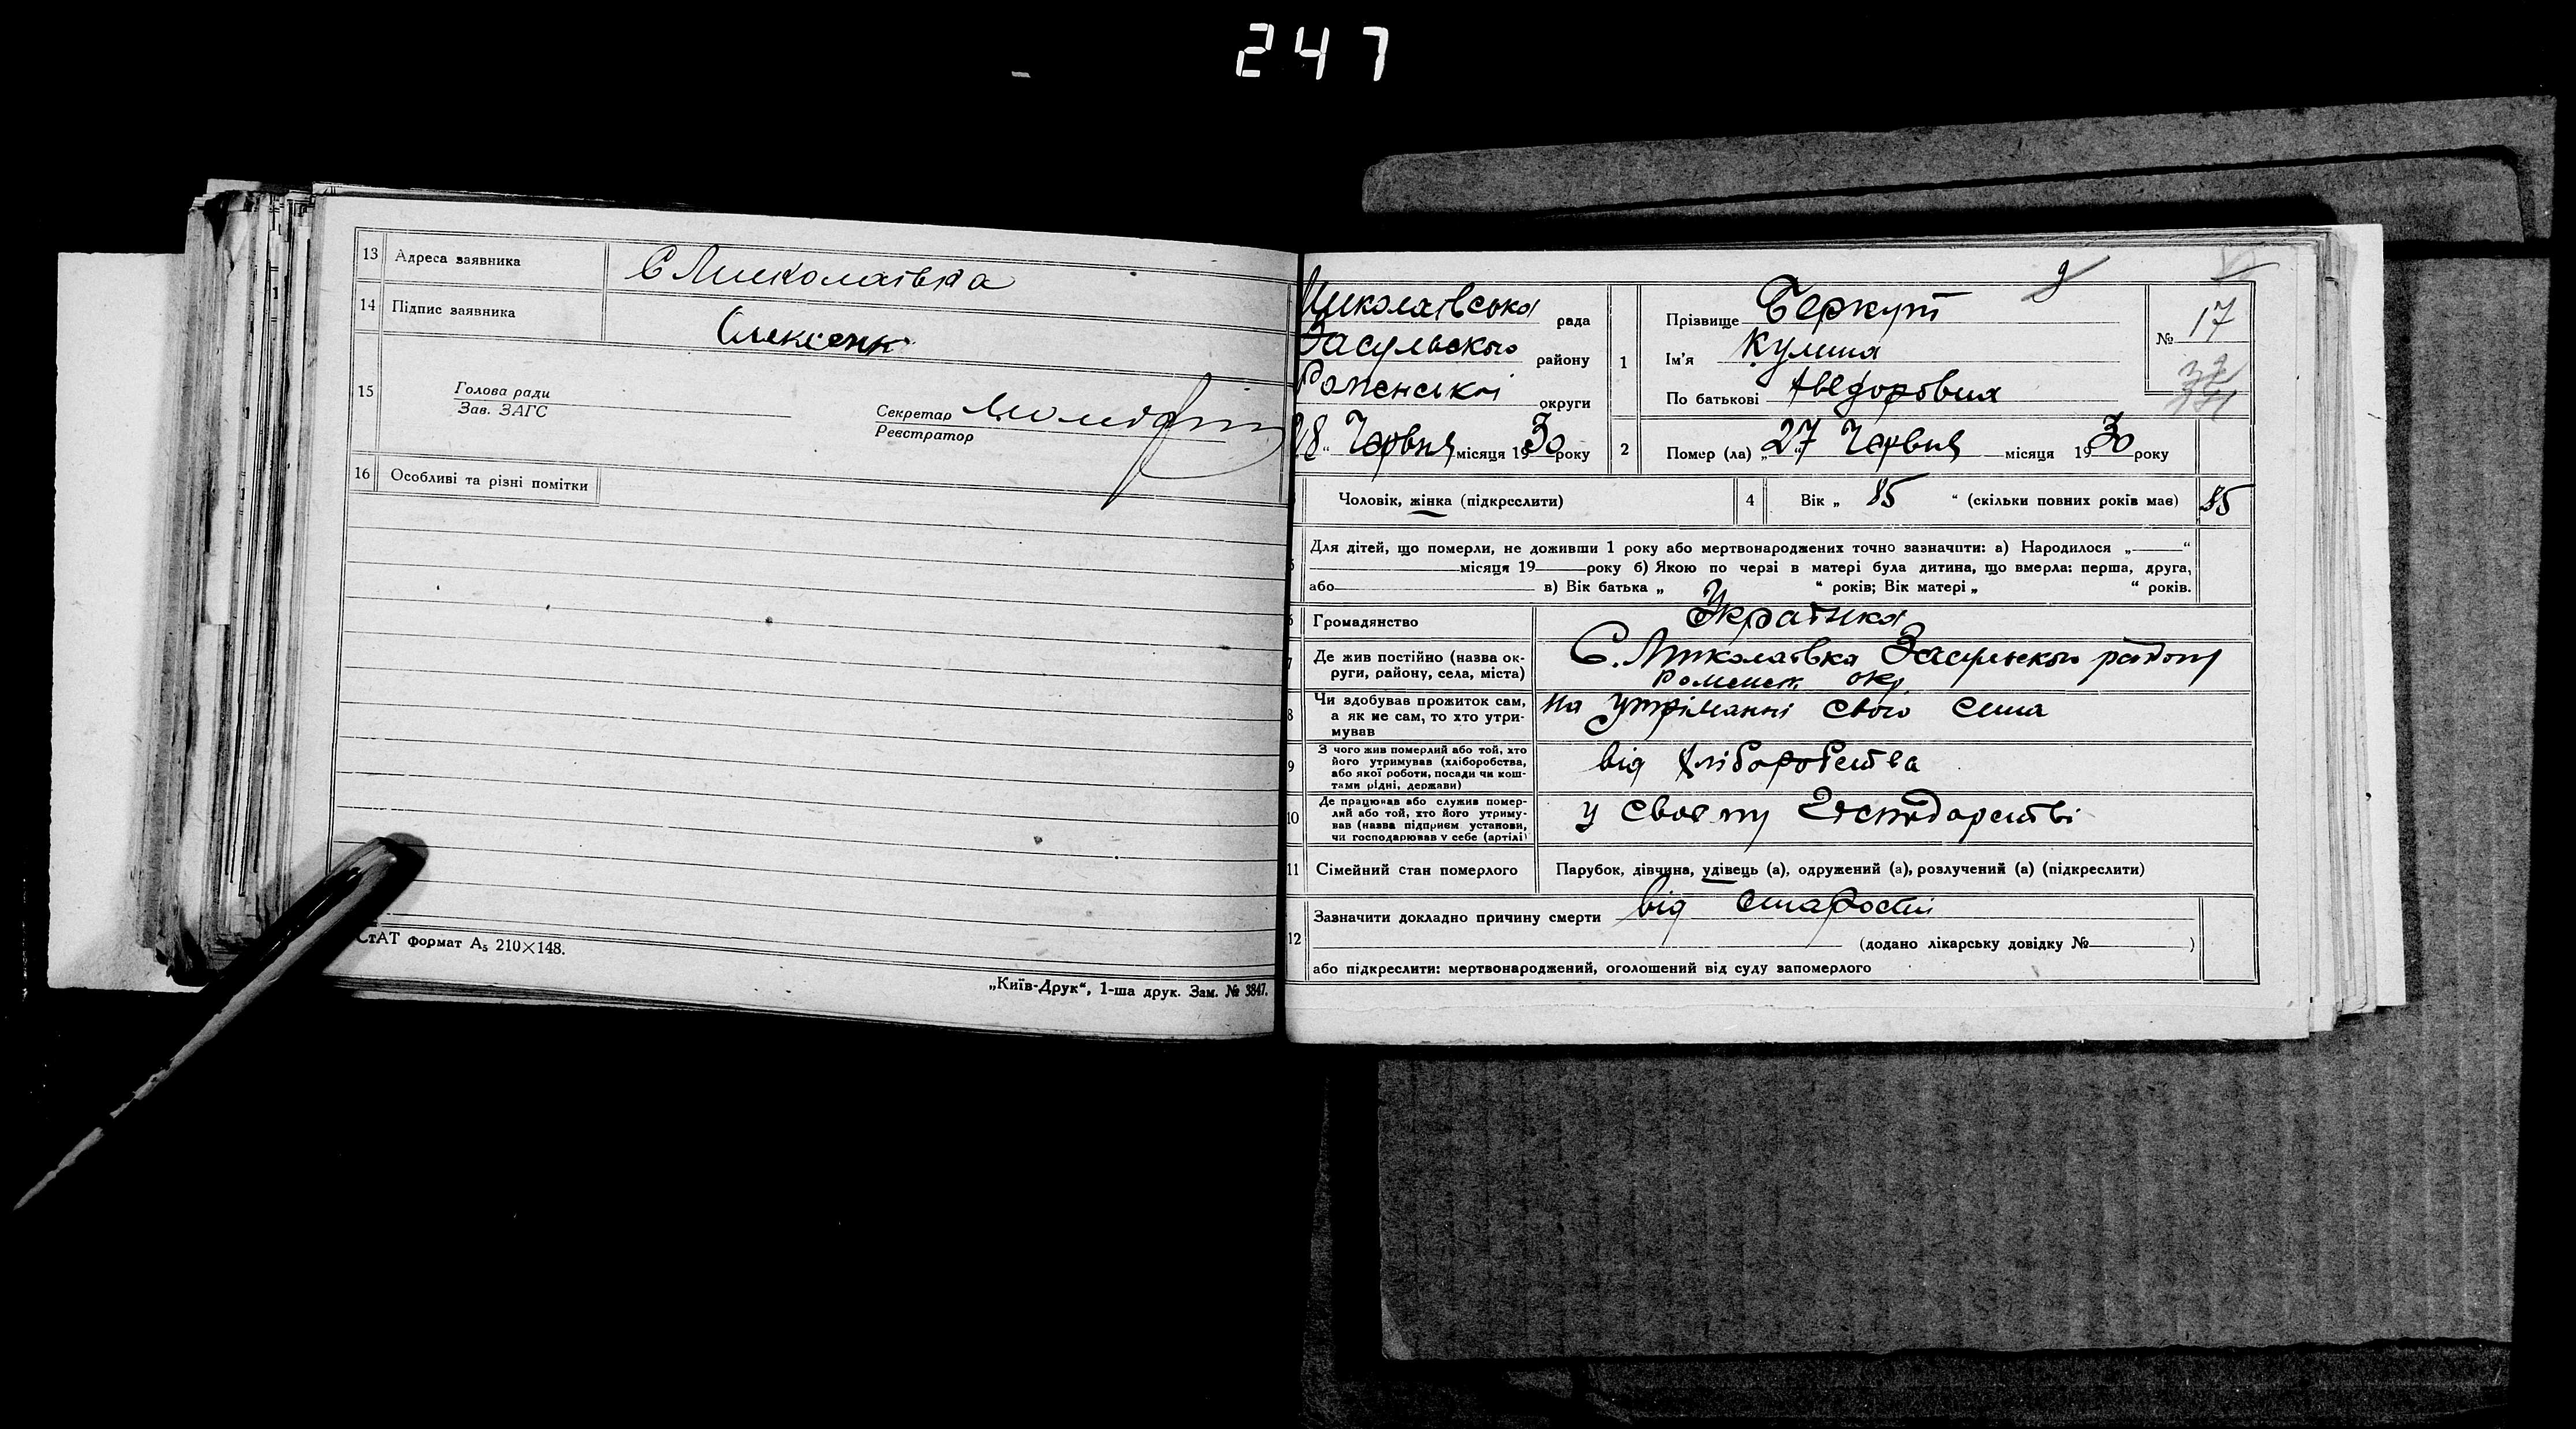 247
13 Адреса заявника С Миколаївка
14 Підпис заявника Олексенк
15 Голова ради
Зав. ЗАГС
Секретар
Реєстратор
16 Особливі та різні помітки
СтАТ формат А₅ 210×148.
„Київ-Друк“, 1-ша друк. Зам. № 3847.
Миколаївська рада
Засульського району
Роменської округи
28 “ Червня місяця 1930 року
1 Прізвище Беркут
Ім’я Кулина
По батькові Хведоровна
№ 17
2 Помер (ла) „27 Червня місяця 1930 року
Чоловік, жінка (підкреслити)
4 Вік „ 85 “ (скільки повних років має) 85
Для дітей, що померли, не доживши 1 року або мертвонароджених точно зазначити: а) Народилося „ “
місяця 19 року б) Якою по черзі в матері була дитина, що вмерла: перша, друга,
або в) Вік батька „ “ років; Вік матері „ “ років.
6 Громадянство Украінка
7 Де жив постійно (назва ок-
руги, району, села, міста)
С. Миколаївка Засульского району
Роменск. окр.
8 Чи вдобував прожиток сам,
а як не сам, то хто утри-
мував
на утріманні свого сина
9 З чого жив померлий або той, хто
його утримував (хліборобства,
або якої роботи, посади чи кош-
тами рідні, держави)
від хліборобства
10 Де працював або служив помер-
лий або той, хто його утриму-
вав (назва підприєм установи,
чи господарював у себе (артілі)
у своєму Господарстві
11 Сімейний стан померлого Парубок, дівчина, удівець (а), одружений (а), розлучений (а) (підкреслити)
12 Зазначити докладно причину смерти від старости
(додано лікарську довідку № )
або підкреслити: мертвонароджений, оголошений від суду запомерлого